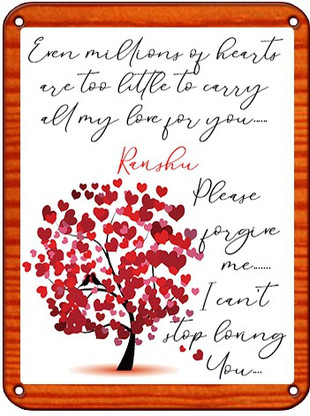 Even millions of hearts
are too little to carry
all my love for you.....
Ranshu
Please
forgive
me.......
I can't
stop loving
You....